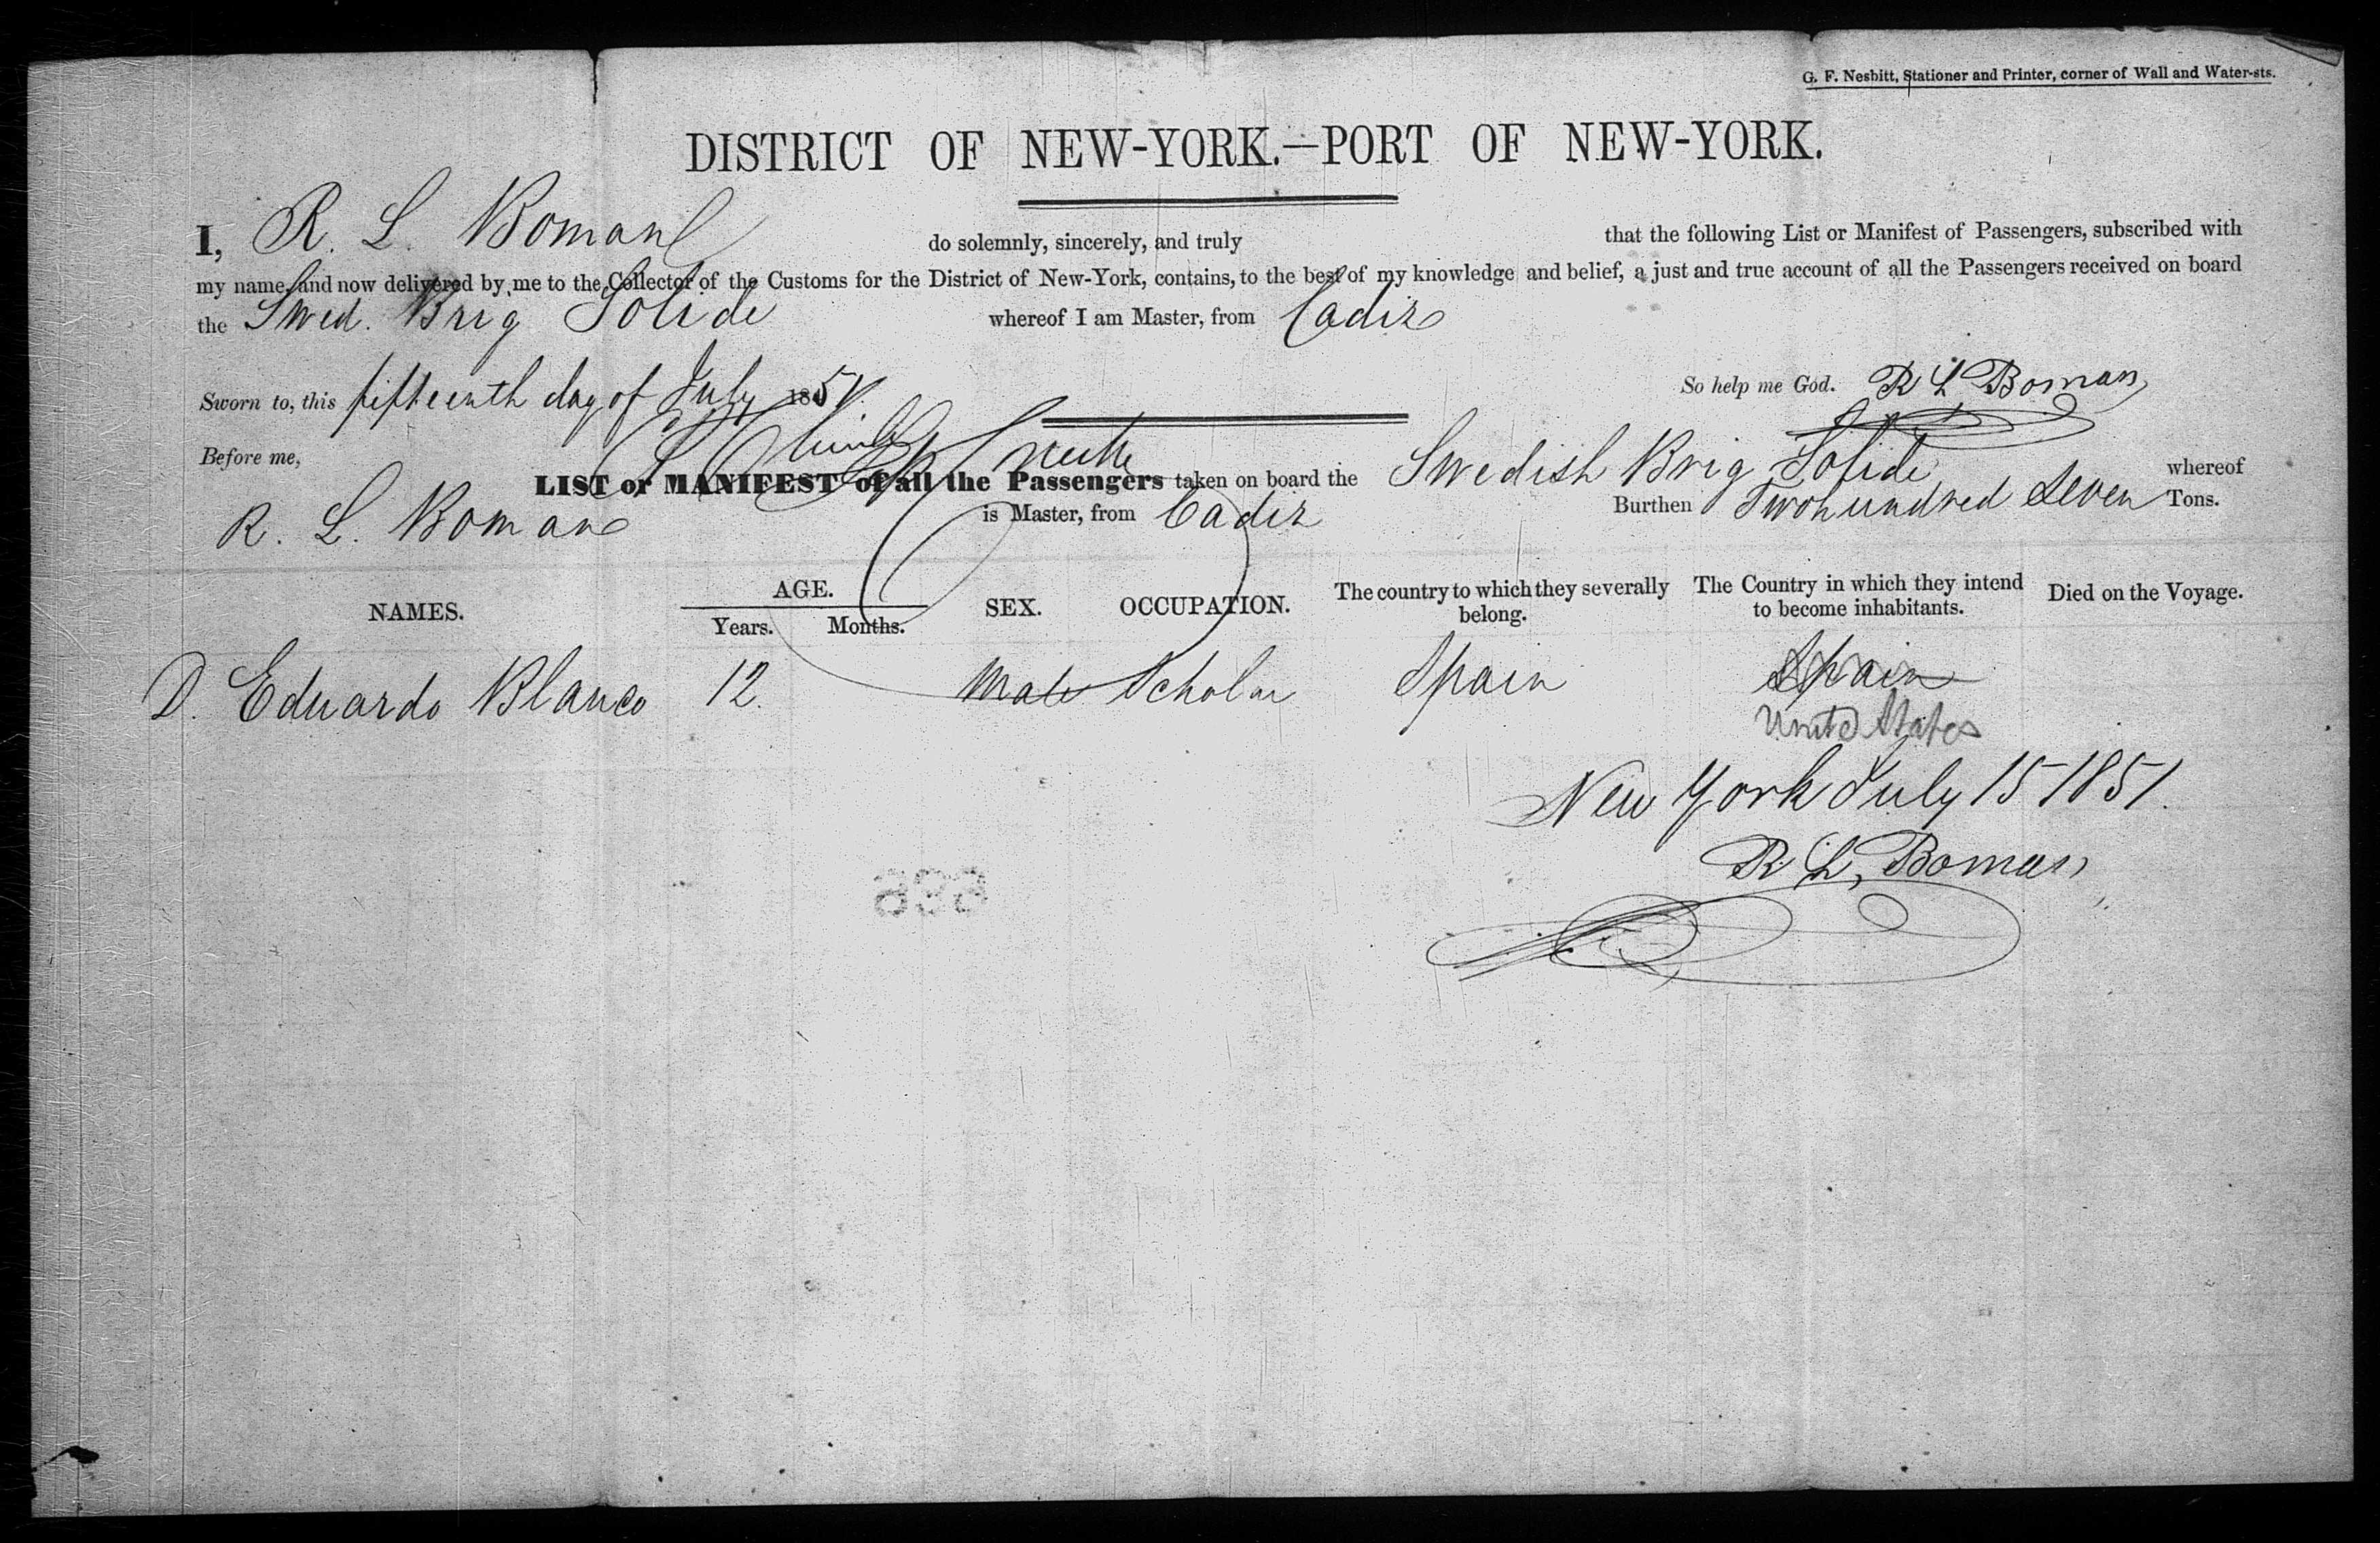 G. F. Nesbitt, Stationer and Printer, corner of Wall and Water-sts.
DISTRICT OF NEW-YORK.—PORT OF NEW-YORK.
I, R. L. Boman do solemnly, sincerely, and truly that the following List or Manifest of Passengers, subscribed with
my name, and now delivered by me to the Collector of the Customs for the District of New-York, contains, to the best of my knowledge and belief, a just and true account of all the Passengers received on board
the Swed. Brig Solide whereof I am Master, from Cadiz
Sworn to, this fifteenth day of July 1851. So help me God. R L Boman
Before me,
LIST or MANIFEST of all the Passengers taken on board the Swedish Brig Solide whereof
R. L. Boman is Master, from Cadiz Burthen Twohundred Seven Tons.
NAMES. AGE. Years. Months. SEX. OCCUPATION. The country to which they severally belong. The Country in which they intend to become inhabitants. Died on the Voyage.
D. Eduardo Blanco 12. Male Scholar Spain Spain
United States
New York July 15 1851.
R. L. Boman